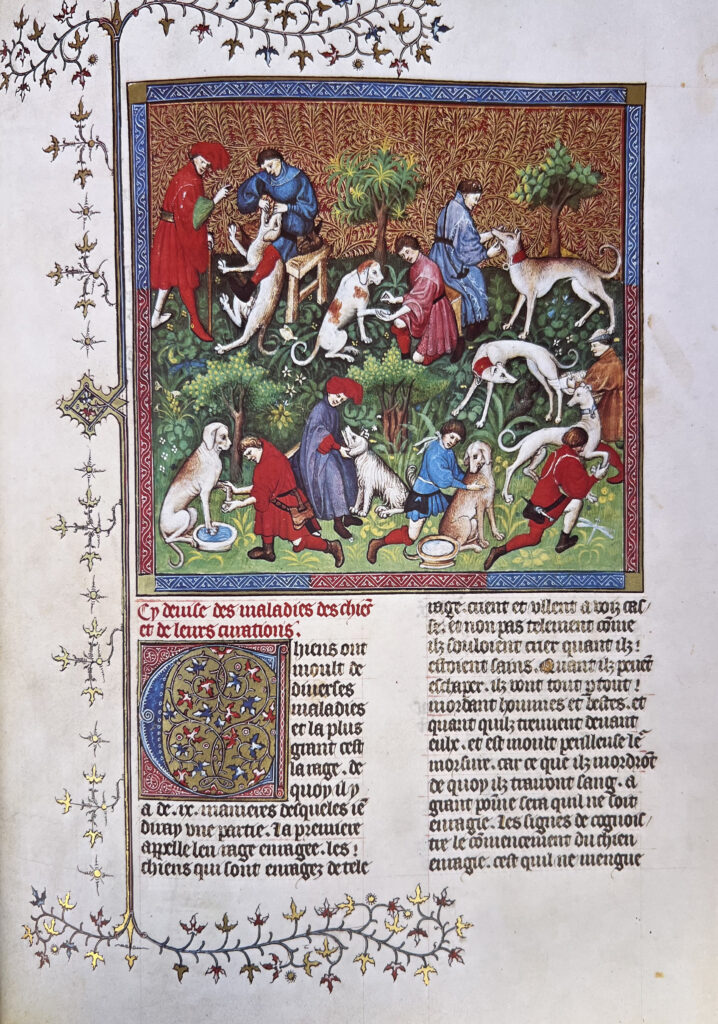 Cy deuise des maladies des chiēs
et de leurs curations.
Chiens ont
moult de
diuerses
maladies
et la plus
grant cest
la rage. de
quoy il y
a de .ix. manieres desqueles ie
diray vne partie. La premiere
appelle len rage enragee. les
chiens qui sont enragez de tele
rage. crient et vllent a voiz cas/
se. et non pas telement cōme
ilz souloient crier quant ilz
estoient sains. Quant ilz peuēt
eschaper. ilz vont tout ptout
mordant hommes et bestes. et
quant quilz treuuent deuant
eulx. et est moult perilleuse leᵉ
morsure. car ce que ilz mordrōt
de quoy ilz trairont sang. a
grant poine sera quil ne soit
enragie. Les signes de cognois/
tre le cōmencement du chien
enragie. cest quil ne mengue